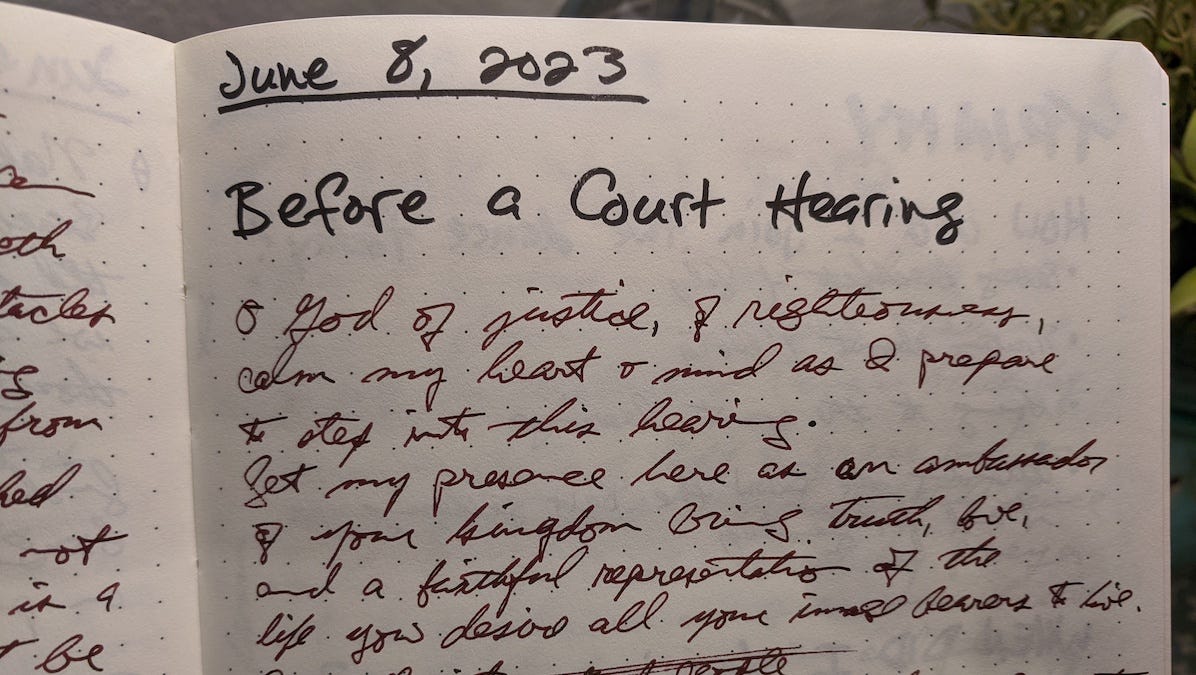 June 8, 2023
Before a Court Hearing
O God of justice, of righteousness,
calm my heart & mind as I prepare
to step into this hearing.
Let my presence here as an ambassador
of your kingdom bring truth, love,
and a faithful representation of the
life you desire all your image bearers to live.
people
oth
tacles
from
not
is a
be